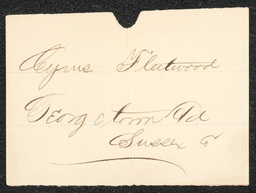 Cyrus Fleetwood
Georgetown Del
Sussex Co